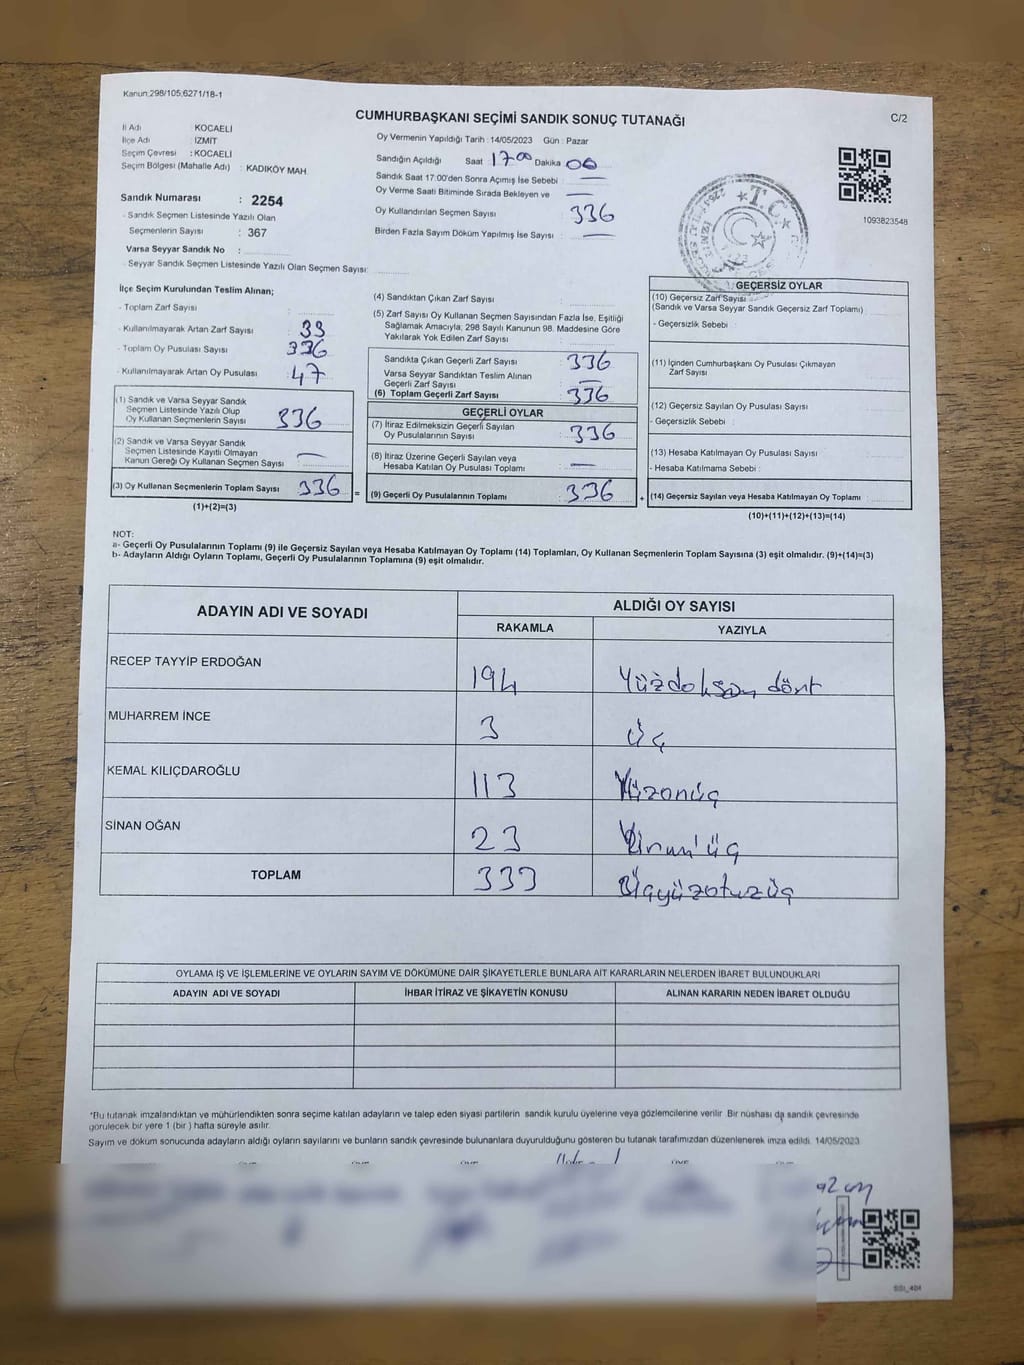 Kanun:298/105,6271/18-1
CUMHURBAŞKANI SEÇİMİ SANDIK SONUÇ TUTANAĞI
C/2
İl Adı : KOCAELİ
İlçe Adı : İZMİT
Seçim Çevresi : KOCAELİ
Seçim Bölgesi (Mahalle Adı) : KADIKÖY MAH.
Oy Vermenin Yapıldığı Tarih : 14/05/2023 Gün : Pazar
Sandığın Açıldığı Saat 17 00 Dakika 00
Sandık Saat 17:00'den Sonra Açımış İse Sebebi : —
Oy Verme Saati Bitiminde Sırada Bekleyen ve —
Oy Kullandırılan Seçmen Sayısı 336
Birden Fazla Sayım Döküm Yapılmış İse Sayısı : —
1093823548
Sandık Numarası : 2254
- Sandık Seçmen Listesinde Yazılı Olan
Seçmenlerin Sayısı : 367
Varsa Seyyar Sandık No :
- Seyyar Sandık Seçmen Listesinde Yazılı Olan Seçmen Sayısı:
T.C.
İlçe Seçim Kurulundan Teslim Alınan;
- Toplam Zarf Sayısı :
- Kullanılmayarak Artan Zarf Sayısı : 33
- Toplam Oy Pusulası Sayısı : 336
- Kullanılmayarak Artan Oy Pusulası : 47
(1) Sandık ve Varsa Seyyar Sandık
Seçmen Listesinde Yazılı Olup
Oy Kullanan Seçmenlerin Sayısı : 336
(2) Sandık ve Varsa Seyyar Sandık
Seçmen Listesinde Kayıtlı Olmayan
Kanun Gereği Oy Kullanan Seçmen Sayısı : —
(3) Oy Kullanan Seçmenlerin Toplam Sayısı 336 =
(1)+(2)=(3)
(4) Sandıktan Çıkan Zarf Sayısı :
(5) Zarf Sayısı Oy Kullanan Seçmen Sayısından Fazla İse, Eşitliği
Sağlamak Amacıyla, 298 Sayılı Kanunun 98. Maddesine Göre
Yakılarak Yok Edilen Zarf Sayısı :
Sandıkta Çıkan Geçerli Zarf Sayısı : 336
Varsa Seyyar Sandıktan Teslim Alınan
Geçerli Zarf Sayısı : —
(6) Toplam Geçerli Zarf Sayısı : 336
GEÇERLİ OYLAR
(7) İtiraz Edilmeksizin Geçerli Sayılan
Oy Pusulalarının Sayısı : 336
(8) İtiraz Üzerine Geçerli Sayılan veya
Hesaba Katılan Oy Pusulası Toplamı : —
(9) Geçerli Oy Pusulalarının Toplamı : 336 +
GEÇERSİZ OYLAR
(10) Geçersiz Zarf Sayısı
(Sandık ve Varsa Seyyar Sandık Geçersiz Zarf Toplamı) :
- Geçersizlik Sebebi :
(11) İçinden Cumhurbaşkanı Oy Pusulası Çıkmayan
Zarf Sayısı :
(12) Geçersiz Sayılan Oy Pusulası Sayısı :
- Geçersizlik Sebebi :
(13) Hesaba Katılmayan Oy Pusulası Sayısı :
- Hesaba Katılmama Sebebi :
(14) Geçersiz Sayılan veya Hesaba Katılmayan Oy Toplamı :
(10)+(11)+(12)+(13)=(14)
NOT:
a- Geçerli Oy Pusulalarının Toplamı (9) ile Geçersiz Sayılan veya Hesaba Katılmayan Oy Toplamı (14) Toplamları, Oy Kullanan Seçmenlerin Toplam Sayısına (3) eşit olmalıdır. (9)+(14)=(3)
b- Adayların Aldığı Oyların Toplamı, Geçerli Oy Pusulalarının Toplamına (9) eşit olmalıdır.
ADAYIN ADI VE SOYADI
ALDIĞI OY SAYISI
RAKAMLA YAZIYLA
RECEP TAYYİP ERDOĞAN 194 Yüzdoksan dört
MUHARREM İNCE 3 Üç
KEMAL KILIÇDAROĞLU 113 Yüzonüç
SİNAN OĞAN 23 Yirmi üç
TOPLAM 333 Üçyüzotuzüç
OYLAMA İŞ VE İŞLEMLERİNE VE OYLARIN SAYIM VE DÖKÜMÜNE DAİR ŞİKAYETLERLE BUNLARA AİT KARARLARIN NELERDEN İBARET BULUNDUKLARI
ADAYIN ADI VE SOYADI İHBAR İTİRAZ VE ŞİKAYETİN KONUSU ALINAN KARARIN NEDEN İBARET OLDUĞU
*Bu tutanak imzalandıktan ve mühürlendikten sonra seçime katılan adayların ve talep eden siyasi partilerin sandık kurulu üyelerine veya gözlemcilerine verilir. Bir nüshası da sandık çevresinde
görülecek bir yere 1 (bir) hafta süreyle asılır.
Sayım ve döküm sonucunda adayların aldığı oyların sayılarını ve bunların sandık çevresinde bulunanlara duyurulduğunu gösteren bu tutanak tarafımızdan düzenlenerek imza edildi. 14/05/2023